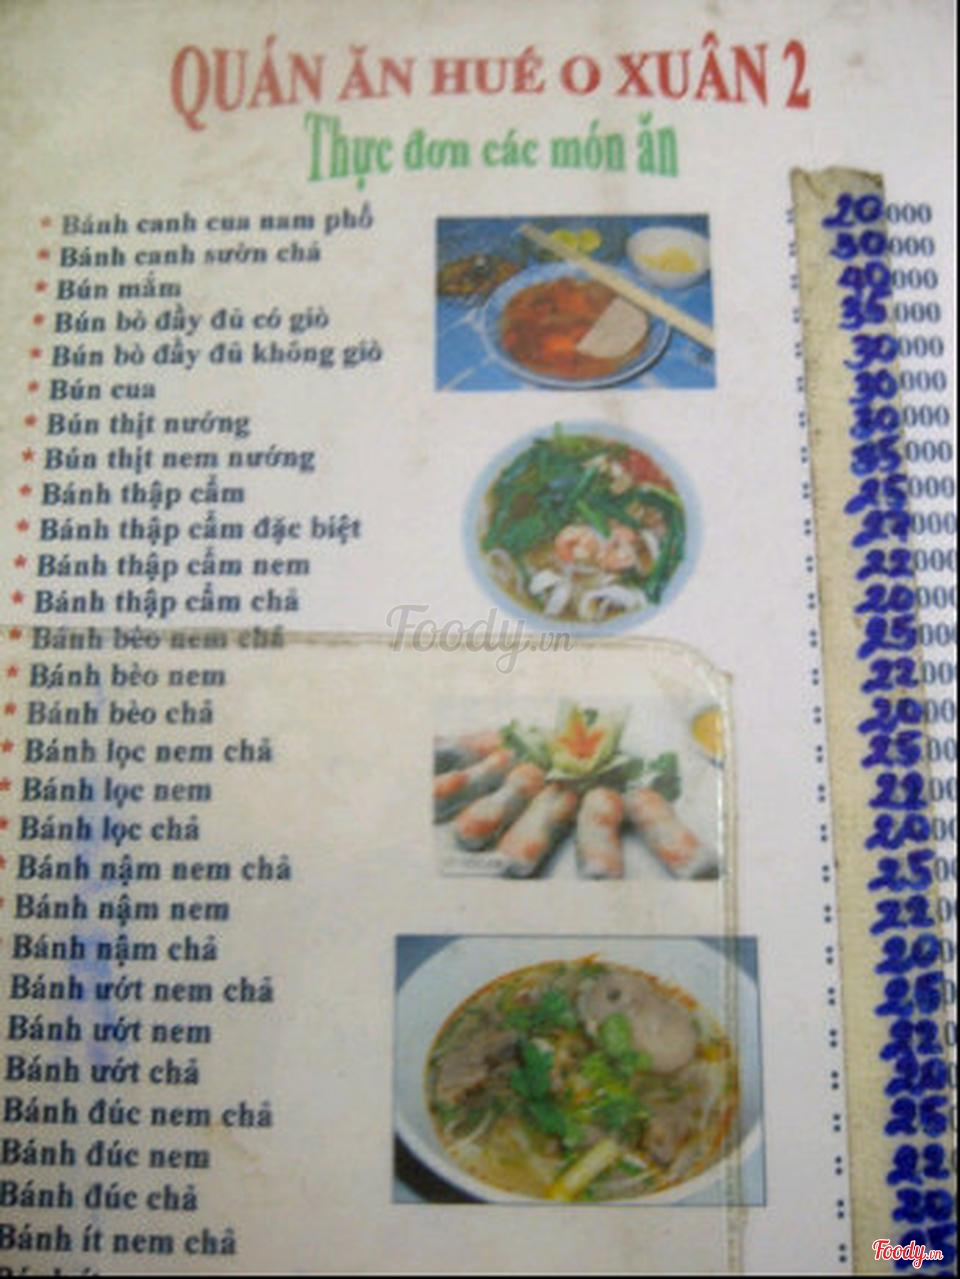 QUÁN ĂN HUÉ O XUÂN 2
Thực đơn các món ăn
* Bánh canh cua nam phổ : 20.000
* Bánh canh sườn chả : 30.000
* Bún mắm : 40.000
* Bún bò đầy đủ có giò : 35.000
* Bún bò đầy đủ không giò : 30.000
* Bún cua : 30.000
* Bún thịt nướng : 30.000
* Bún thịt nem nướng : 35.000
* Bánh thập cẩm : 25.000
* Bánh thập cẩm đặc biệt : 27.000
* Bánh thập cẩm nem : 22.000
* Bánh thập cẩm chả : 20.000
* Bánh bèo nem chả : 25.000
* Bánh bèo nem : 22.000
* Bánh bèo chả : 20.00
* Bánh lọc nem chả : 25.00
* Bánh lọc nem : 22.00
* Bánh lọc chả : 20.00
* Bánh nậm nem chả : 25.0
* Bánh nậm nem : 22.0
Bánh nậm chả : 20.0
Bánh ướt nem chả : 25.0
Bánh ướt nem : 22.0
Bánh ướt chả : 20
Bánh đúc nem chả : 25
Bánh đúc nem : 22
Bánh đúc chả : 20
Bánh ít nem chả :
Foody.vn
Foody.vn